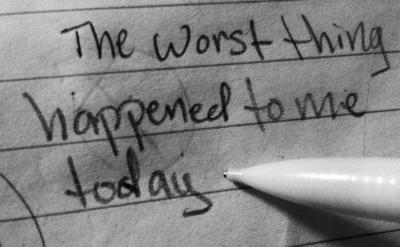 The worst thing
happened to me
today